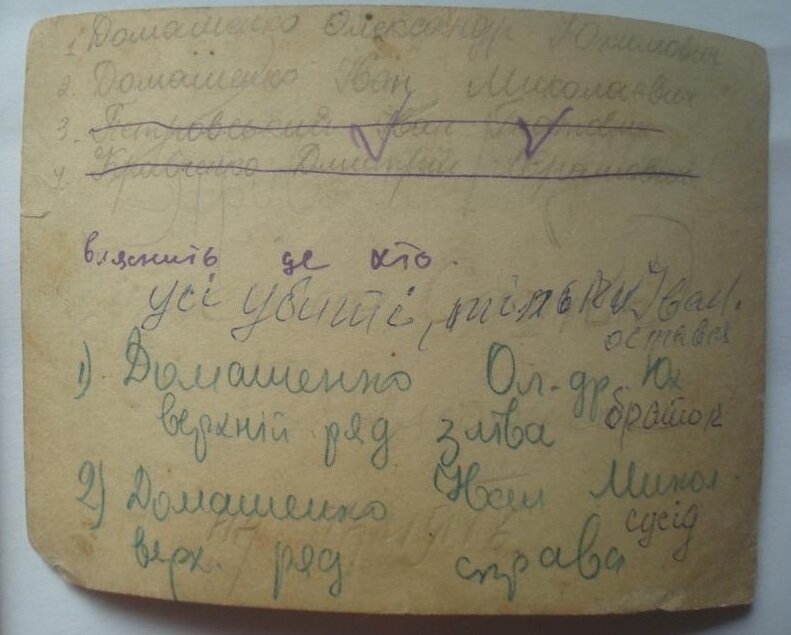 1. Домашенко Олександр Юхимович
2. Домашенко Іван Миколаєвич
3. Петровський Іван
4. Кравченко Дмитрій
вияснить де хто.
усі убиті, тільки Іван.
остався
1) Домашенко Ол-др. Юх
верхній ряд зліва браток
2) Домашенко Іван Микол.
сусід
верх. ряд справа